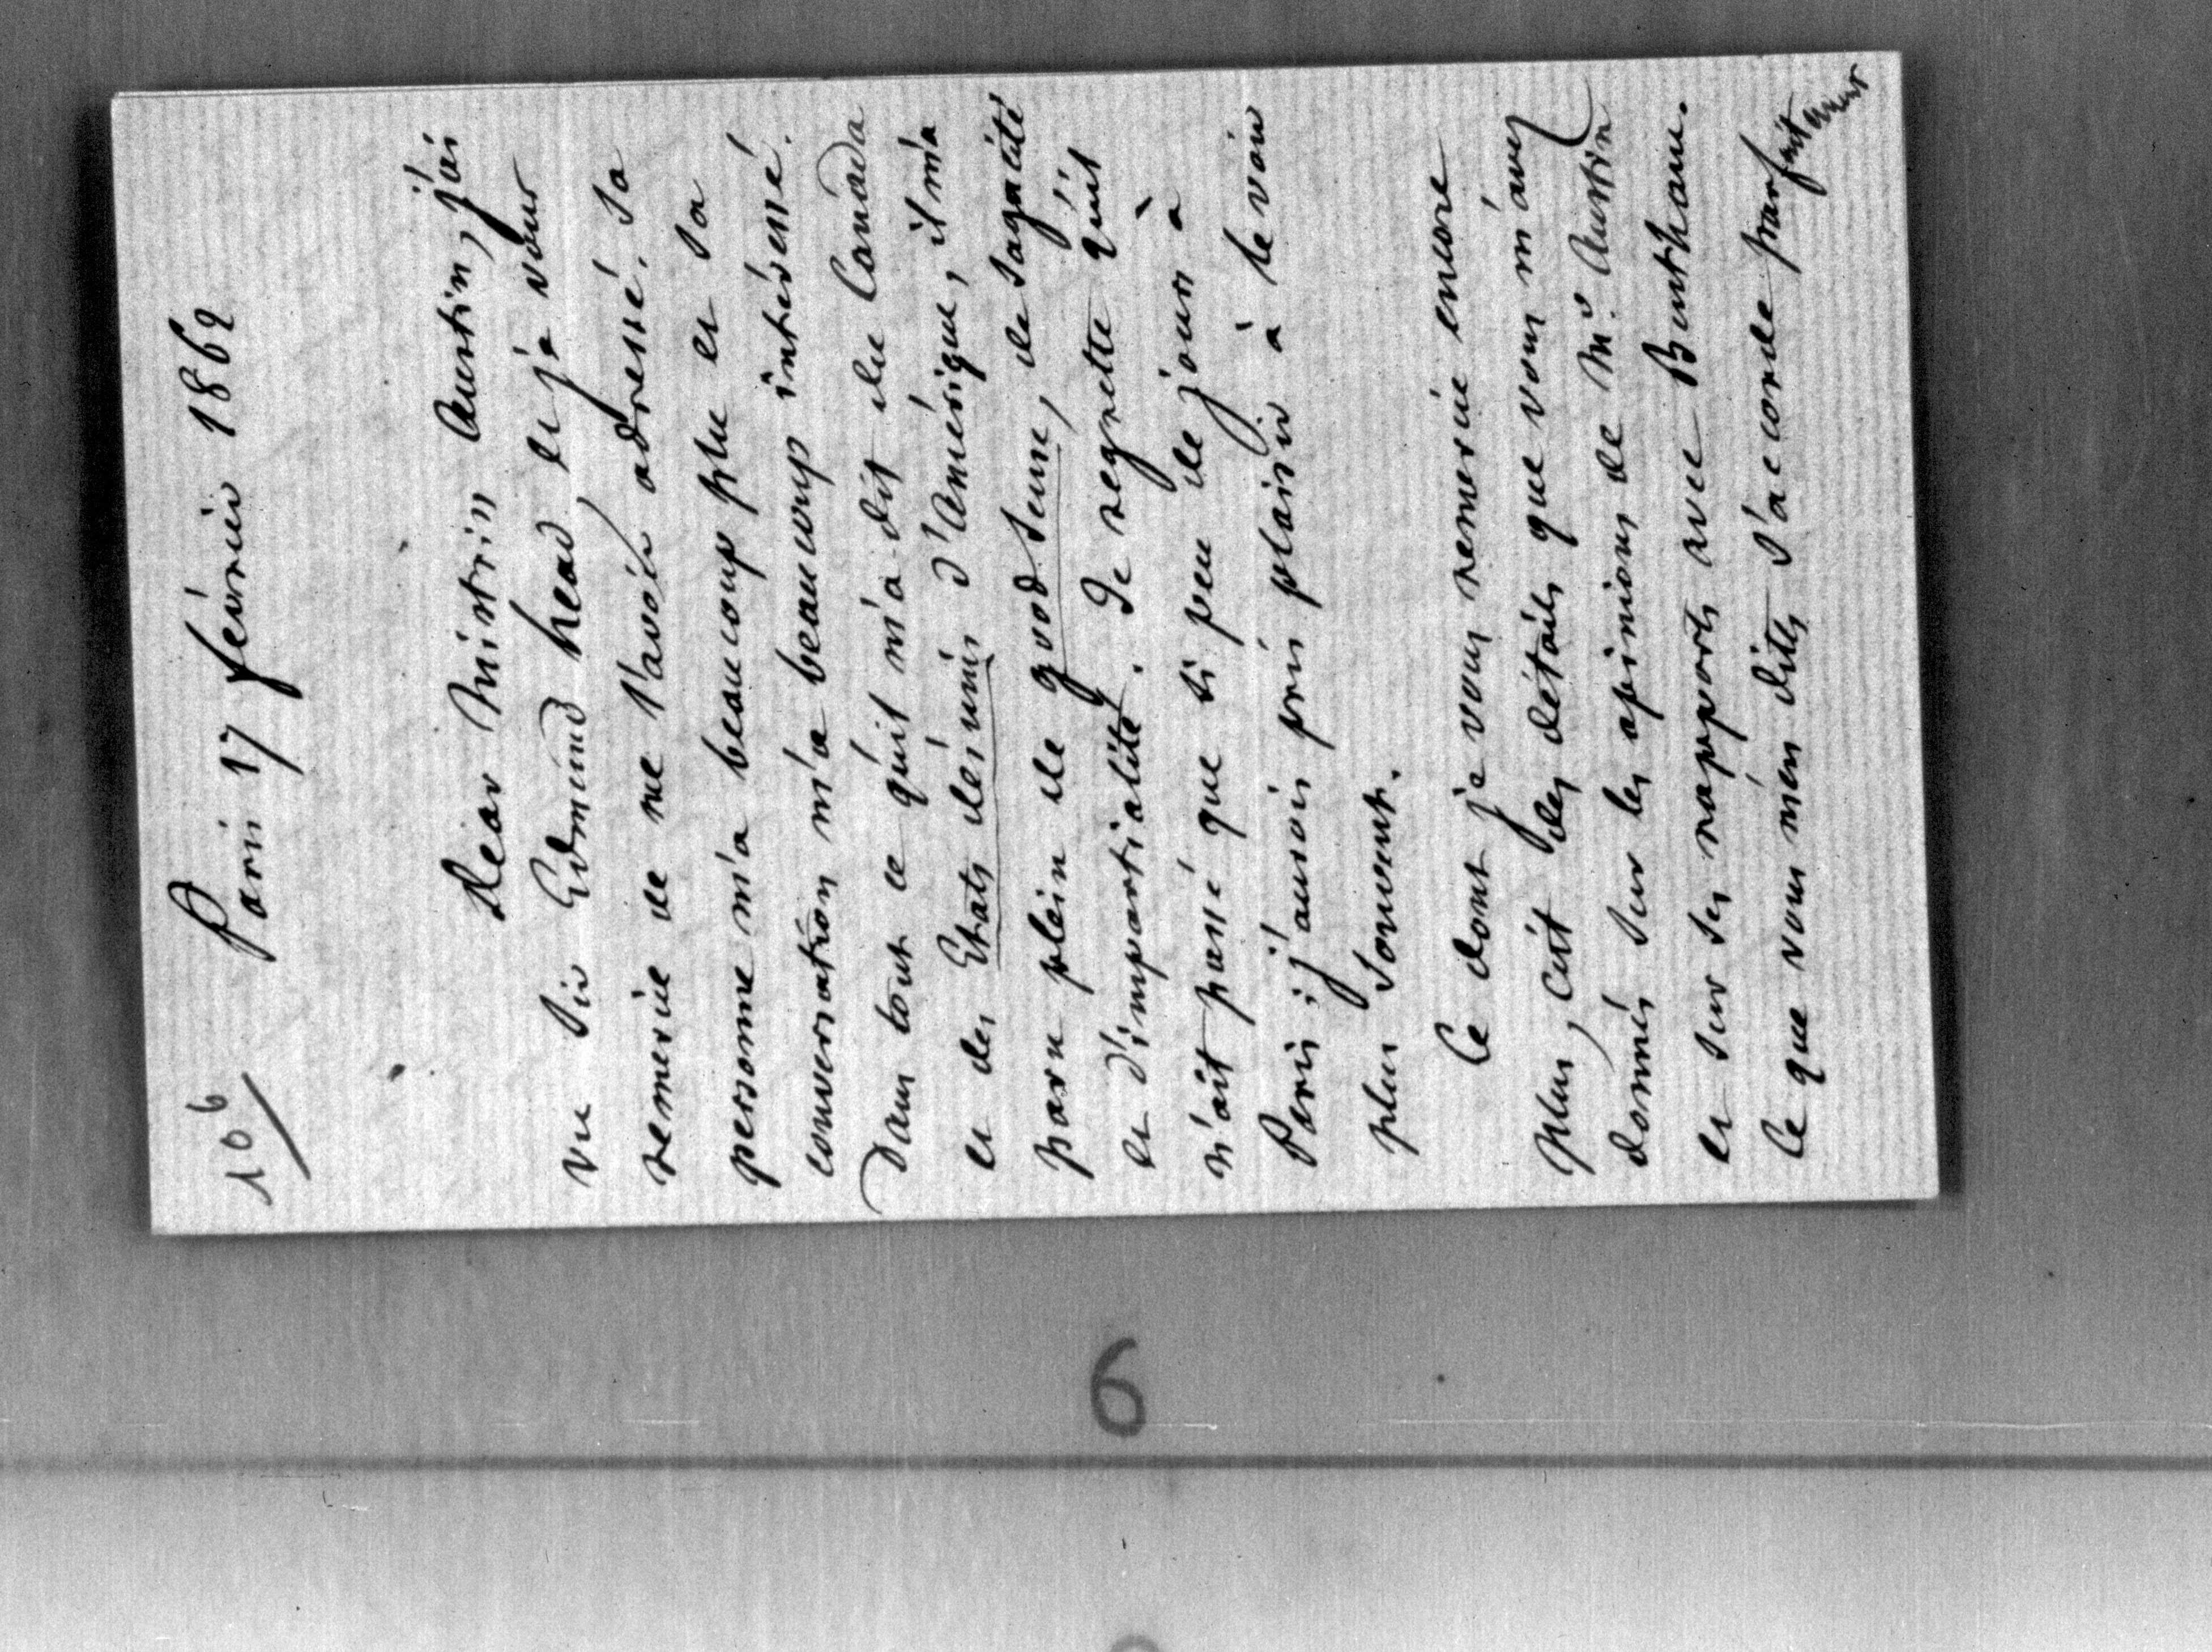 106
Paris 17 février 1862
Dear Mistriss Austin, j'ai
vu Sir Edmund head, et je vous
remercie de me l'avoir adressé. Sa
personne m'a beaucoup plu et sa
conversation m'a beaucoup intéressé.
Dans tout ce qu'il m'a dit du Canada
et des Etats désunis d'Amérique, il m'a
paru plein de good sense, de sagacité
et d'impartialité. Je regrette qu'il
n'ait passé que si peu de jours à
Paris ; j'aurais pris plaisir à le voir
plus souvent.
Ce dont je vous remercie encore
plus, c'est des détails que vous m'avez
donnés sur les opinions de Mr. Austin
et sur ses rapports avec Bentham.
Ce que vous m'en dites s'accorde parfaitement
6